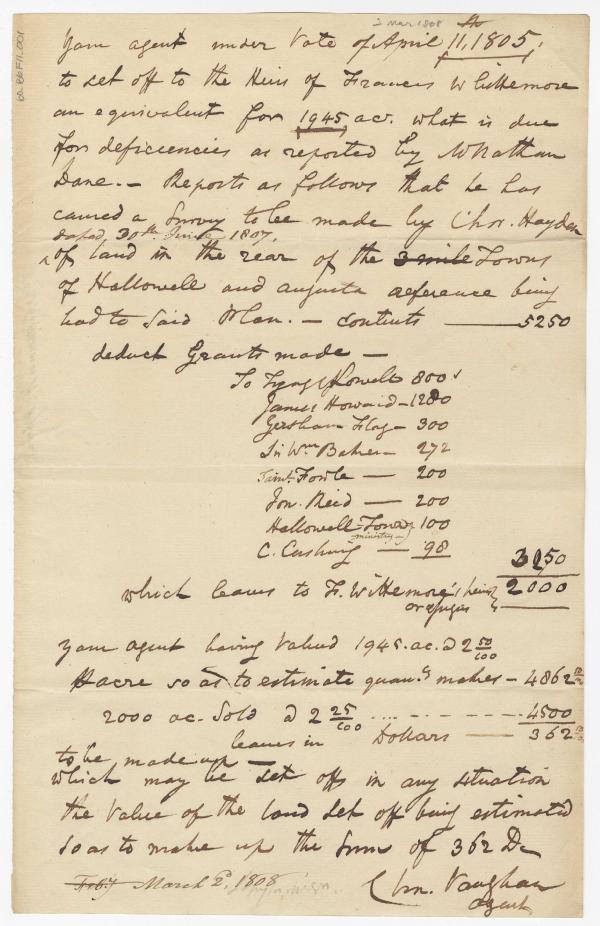 2 Mar 1808
60.86F11.001
Yam agent under Vote of April 11, 1805,
to set off to the Heirs of Francis Whittemore
an equivalent for 1945 ac. what is due
for deficiencies as reported by Mr Nathan
Dane. — Reports as follows that he has
caused a Survey to be made by Chas. Hayden
dated 30th June 1807,
^ of land in the rear of the 3 mile Towns
of Hallowell and augusta reference being
had to said Plan. — contents — 5250
deduct Grants made —
To Howell 800
James Howard — 1280
Gersham Flag — 300
Sir Wm Baker — 272
Fowle — 200
Jon. Reid — 200
Hallowell Town 100
ministry
C. Cushing — 98
3250
which leaves to F. Wittemore's heirs 2000
or assigns
Yam agent having Valued 1945. ac. @ 2 50/100
acre so as to estimate quan.y makes — 4862
2000 ac. Sold @ 2 25/100 — 4500
leaves in Dollars — 362
to be made up —
which may be set off in any situation
the Value of the land set off being estimated
so as to make up the Sum of 362 D
Feby March 2, 1808
Chn. Vaughan
agent